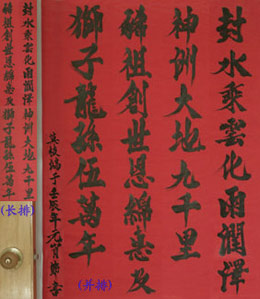 封水乘雲化雨潤澤
神洲大地九千里
祖創世恩綿惠及
獅子龍孫伍萬年
于壬辰年元宵節
(并排)
封水乘雲化雨潤澤神洲大地九千里
祖創世恩綿惠及獅子龍孫伍萬年
(长排)